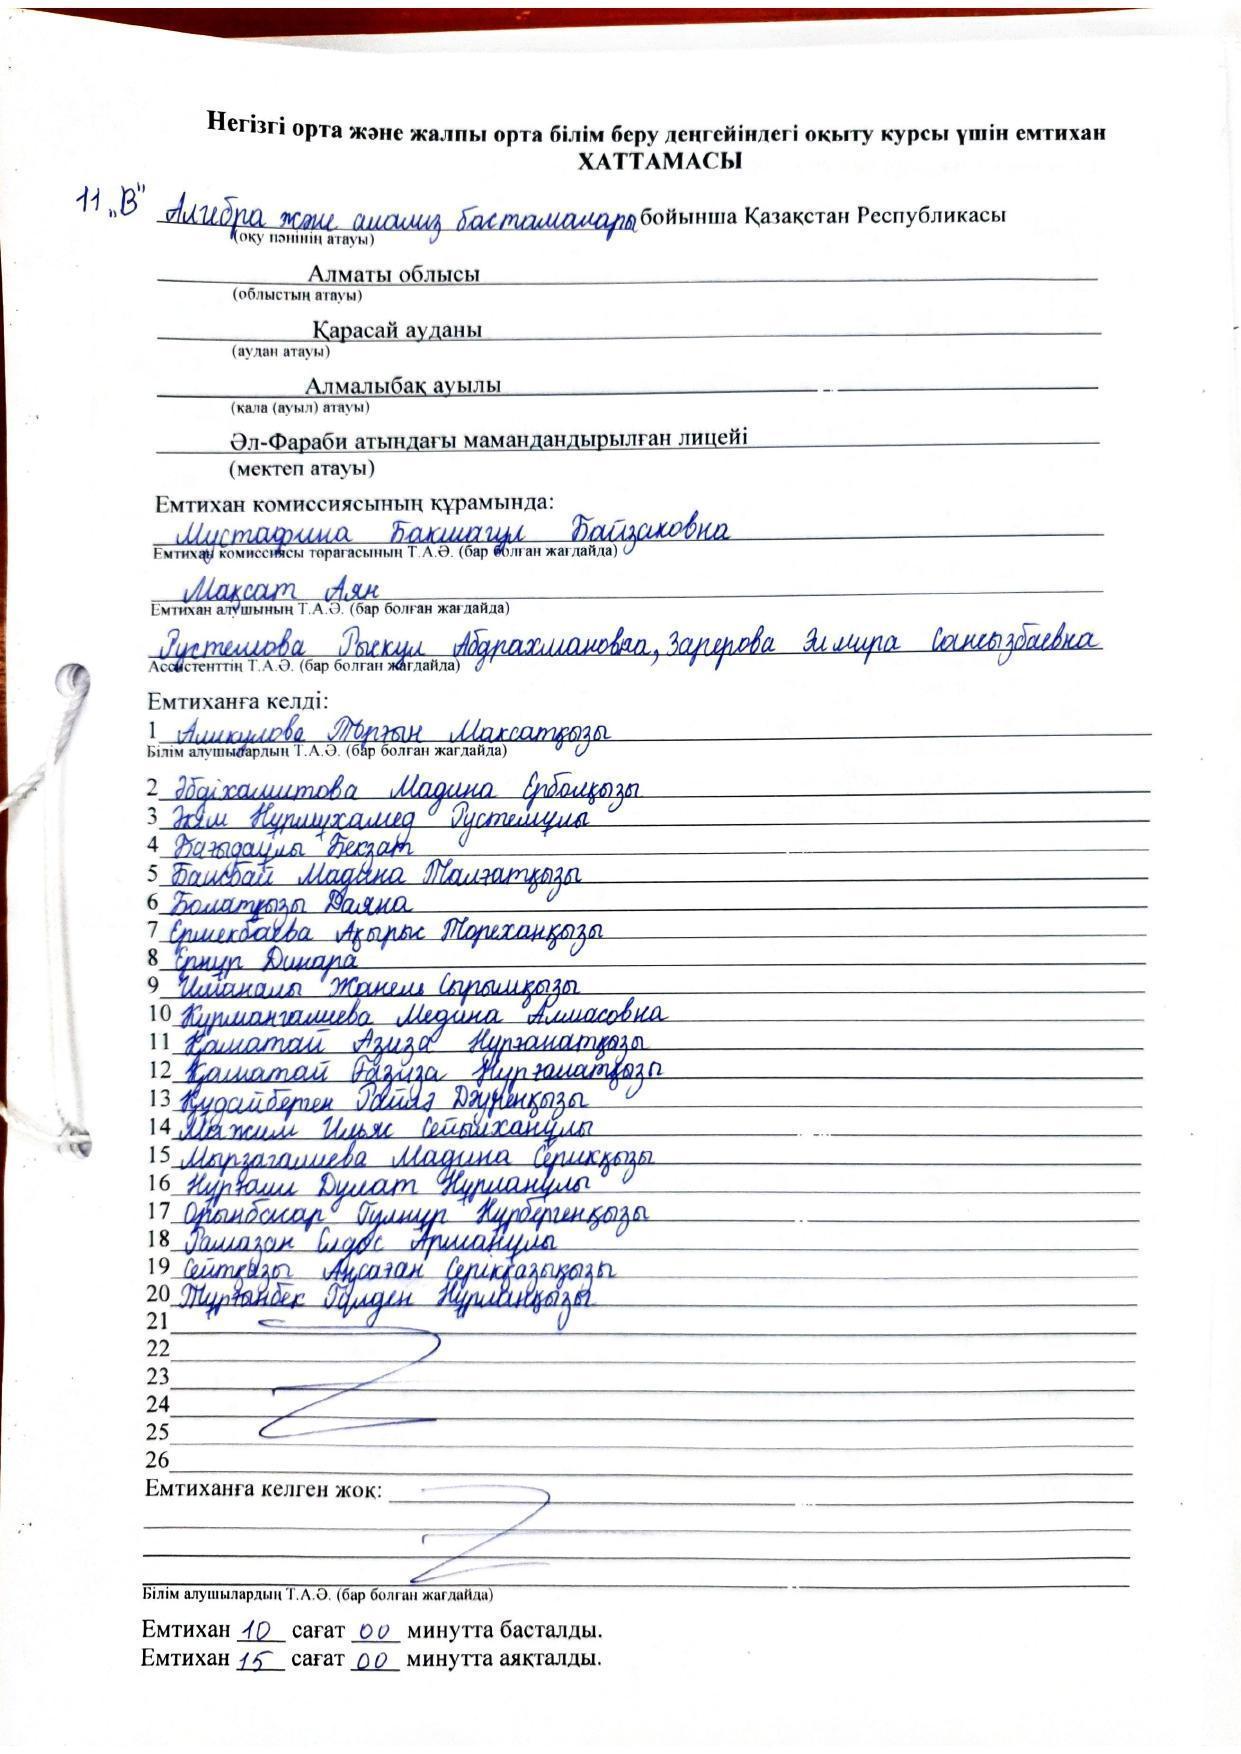 Негізгі орта және жалпы орта білім беру деңгейіндегі оқыту курсы үшін емтихан
ХАТТАМАСЫ
11 „В" Алгебра және анализ бастамалары бойынша Қазақстан Республикасы
(оқу пәнінің атауы)
Алматы облысы
(облыстың атауы)
Қарасай ауданы
(аудан атауы)
Алмалыбақ ауылы
(қала (ауыл) атауы)
Әл-Фараби атындағы мамандандырылған лицейі
(мектеп атауы)
Емтихан комиссиясының құрамында:
Мустафина Бакшагул Байзаковна
Емтихан комиссиясы төрағасының Т.А.Ә. (бар болған жағдайда)
Мақсат Аян
Емтихан алушының Т.А.Ә. (бар болған жағдайда)
Рустемова Рыскул Абдрахмановна, Зарерова Элмира Сансызбаевна
Ассистенттің Т.А.Ә. (бар болған жағдайда)
Емтиханға келді:
1 Аликулова Торғын Максатқызы
Білім алушылардың Т.А.Ә. (бар болған жағдайда)
2 Әбдіхамитова Мадина Ерболқызы
3 Әкім Нұрмұхамед Рустемұлы
4 Бағыдаұлы Бекзат
5 Баисбай Мадина Талғатқызы
6 Болатқызы Даяна
7 Ермекбаева Ақырыс Тореханқызы
8 Ернұр Динара
9 Иманалы Жанель Сырымқызы
10 Курмангалиева Медина Алмасовна
11 Қаматай Азиза Нұрғанатқызы
12 Қаматай Ғазиза Нұрғанатқызы
13 Құдайберген Райлә Дәуренқызы
14 Мажим Ильяс Сейілханұлы
15 Мырзагалиева Мадина Серікқызы
16 Нұрғали Дулат Нұрланұлы
17 Орынбасар Гүлнұр Нұрбергенқызы
18 Рамазан Елдос Арманұлы
19 Сейтқазы Аңсаған Серікқазықызы
20 Тұрғанбек Гүлден Нұрланқызы
21
22
23
24
25
26
Емтиханға келген жоқ:
Білім алушылардың Т.А.Ә. (бар болған жағдайда)
Емтихан 10 сағат 00 минутта басталды.
Емтихан 15 сағат 00 минутта аяқталды.